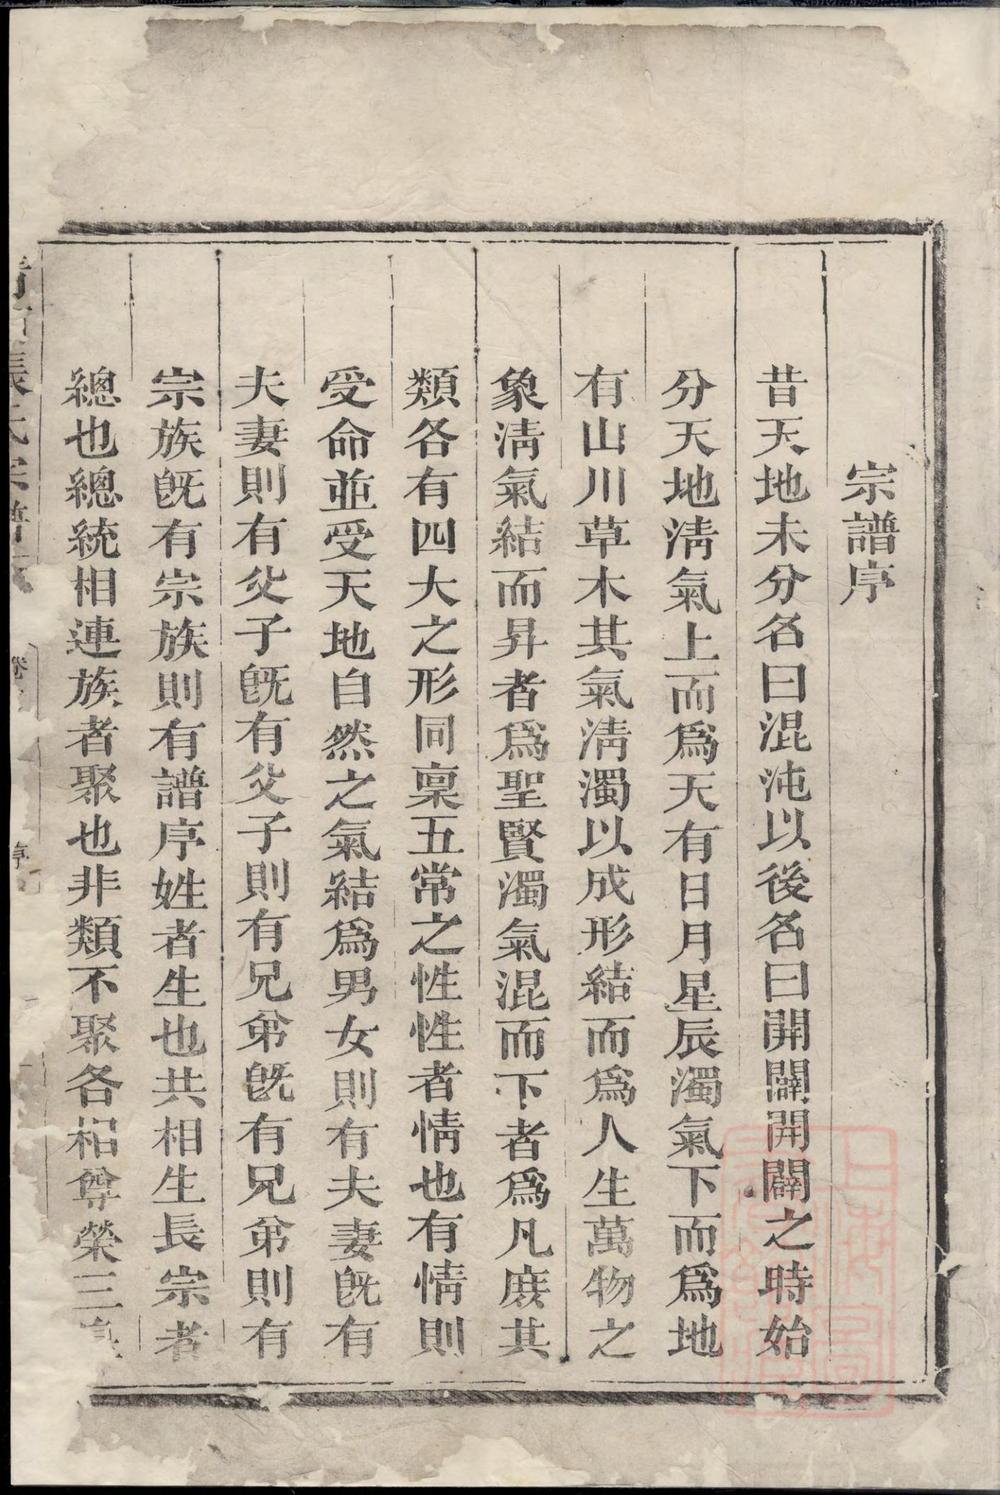 宗譜序
昔天地未分名曰混沌以後名曰開闢開闢之時始
分天地淸氣上而爲天有日月星辰濁氣下而爲地
有山川草木其氣淸濁以成形結而爲人生萬物之
象淸氣結而昇者爲聖賢濁氣混而下者爲凡庶其
類各有四大之形同稟五常之性性者情也有情則
受命並受天地自然之氣結爲男女則有夫妻旣有
夫妻則有父子旣有父子則有兄弟旣有兄弟則有
宗族旣有宗族則有譜序姓者生也共相生長宗者
總也總統相連族者聚也非類不聚各相尊榮三
張氏宗譜
卷
序